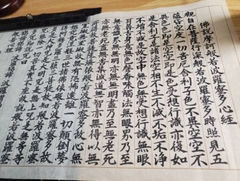 佛說摩訶般若波羅蜜多心經
觀自在菩薩行深般若波羅蜜多時照見五
蘊皆空度一切苦厄舍利子色不異空空不
異色色即是空空即是色受想行識亦復如
是舍利子是諸法空相不生不滅不垢不淨
不增不減是故空中無色無受想行識無眼
耳鼻舌身意無色聲香味觸法無眼界乃至
無意識界無無明亦無無明盡乃至無老死
亦無老死盡無苦集滅道無智亦無得以無
所得故菩提薩埵依般若波羅蜜多故心無
罣礙無罣礙故無有恐怖遠離一切顛倒夢
想究竟涅槃三世諸佛依般若波羅蜜多故
三菩提故知般若波羅蜜
無等等